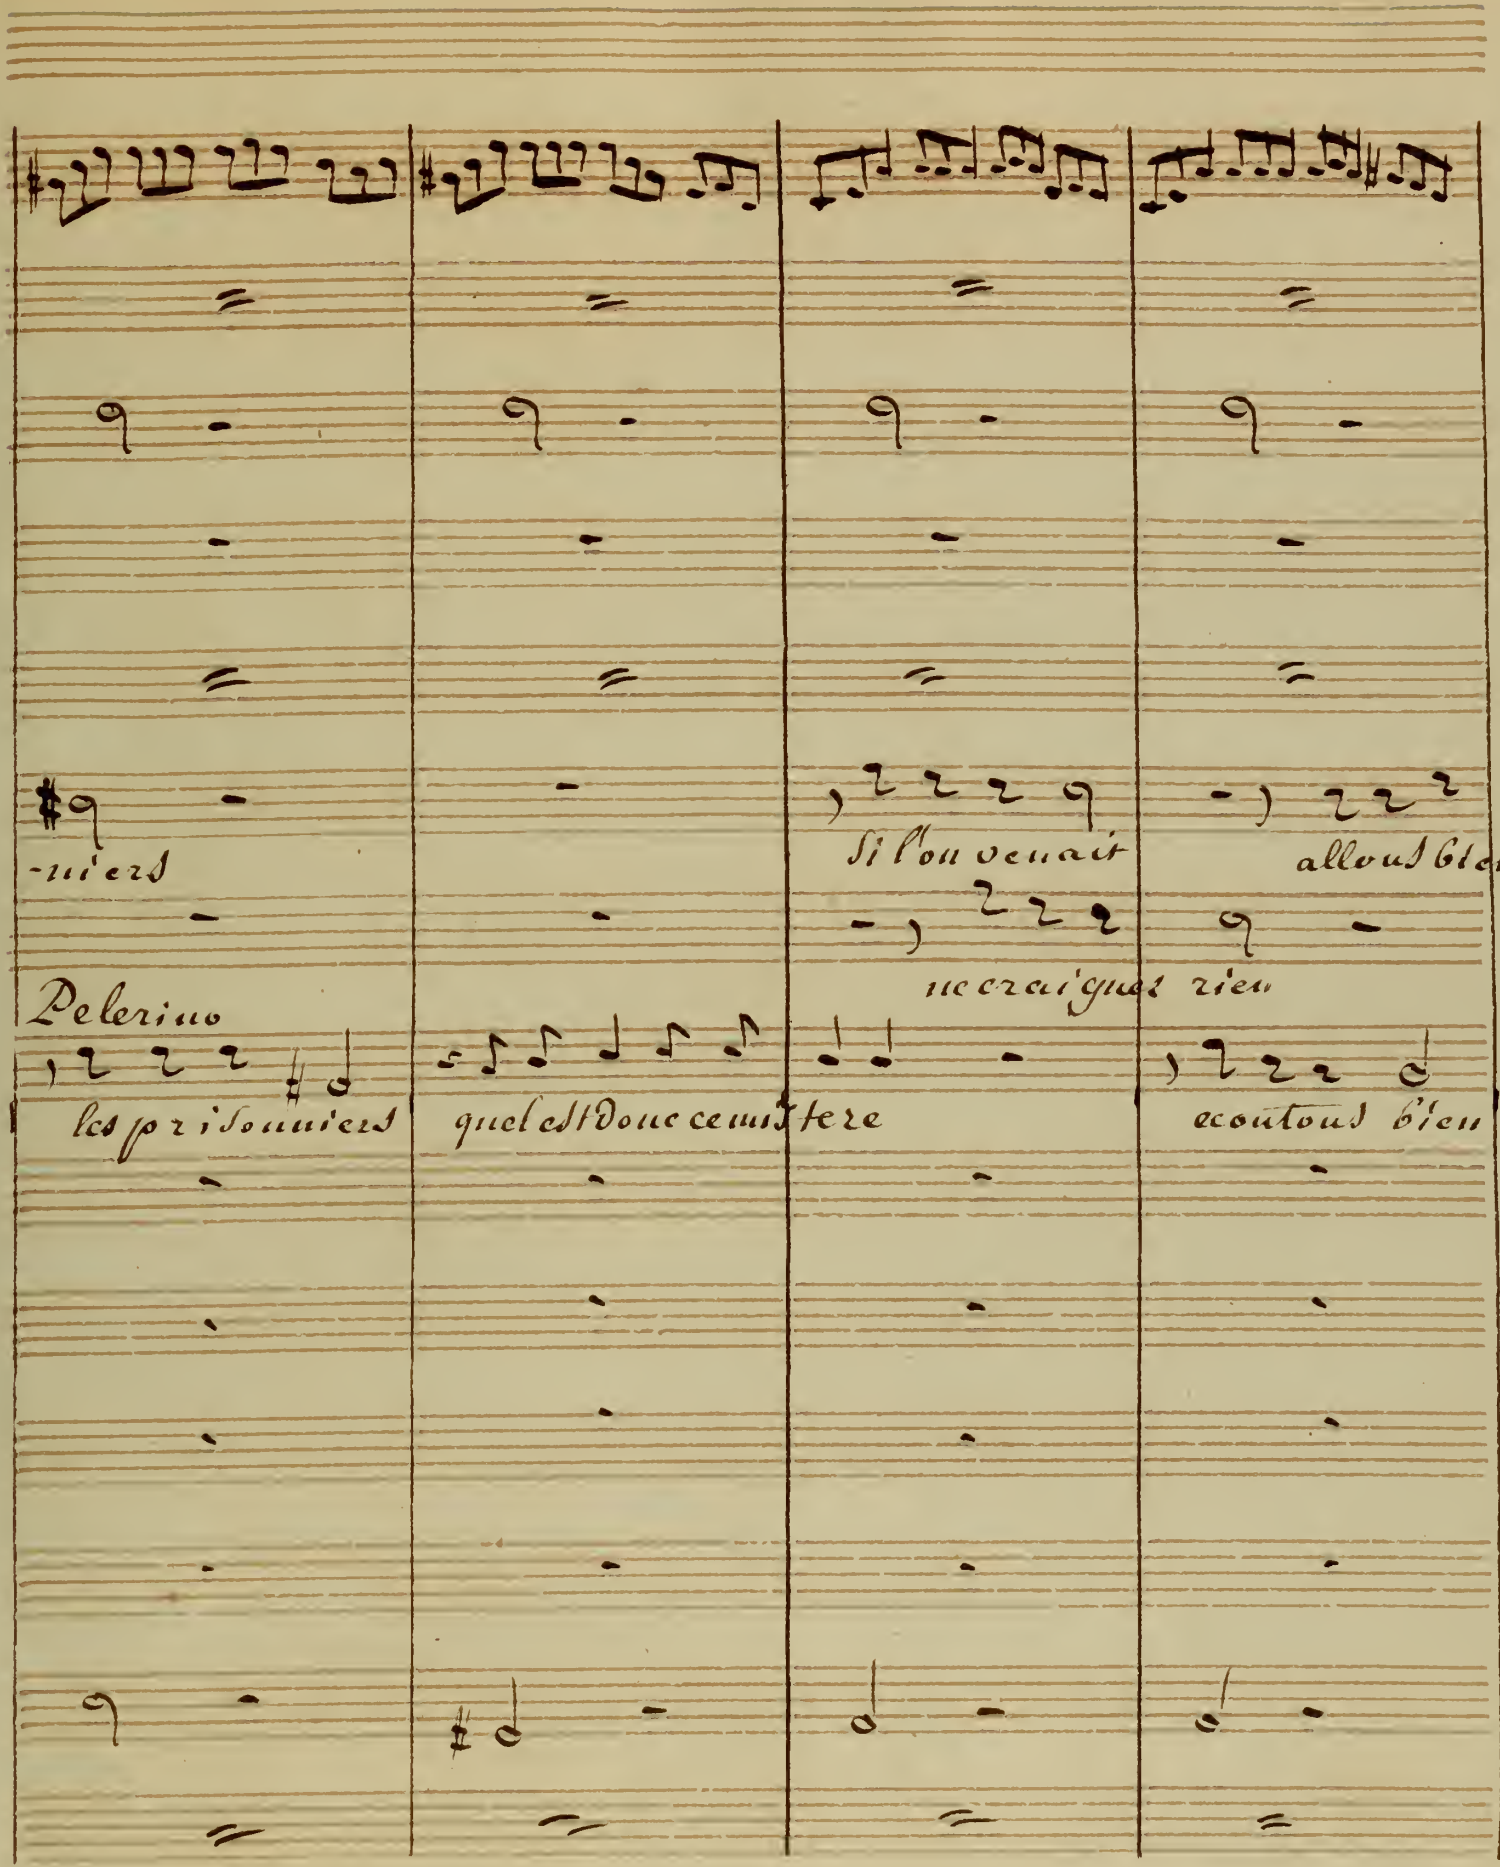 -niers
Si l'on venait
allons bien
ne craignez rien
Pelerino
les prisonniers quel est donc ce mistere ecoutons bien